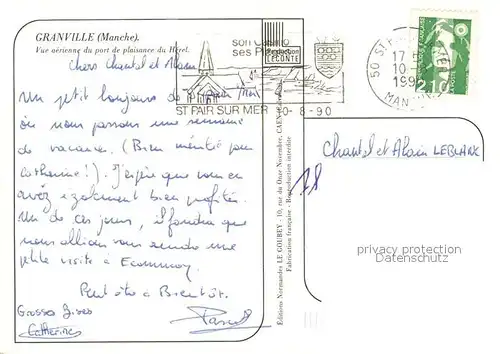 GRANVILLE (Manche).
Vue aérienne du port de plaisance du Hérel.
Chers Chantal et Alain
Un petit bonjour de St Pair/Mer
où nous passons une semaine
de vacances. (Bien méritée pour
Catherine!). J'espère que vous en
avez également bien profité.
Un de ces jours, il faudra que
nous allions vous rendre une
petite visite à Ecommoy.
Peut être à Bientôt.
Grosses Bises
Catherine
Pascal
son Casino
ses P
Reproduction
LECONTE
ST PAIR SUR MER
10-8-90
50 ST PAIR
17
10
199
MAN
2,10
Chantal et Alain LEBLANC
Editions Normandes LE GOUBEY - 10, rue du Onze Novembre, CAEN
Fabrication française - Reproduction interdite
privacy protection
Datenschutz